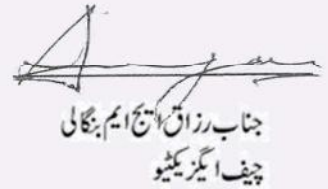 جناب رزاق ایچ ایم بنگالی
چیف ایگزیکٹیو